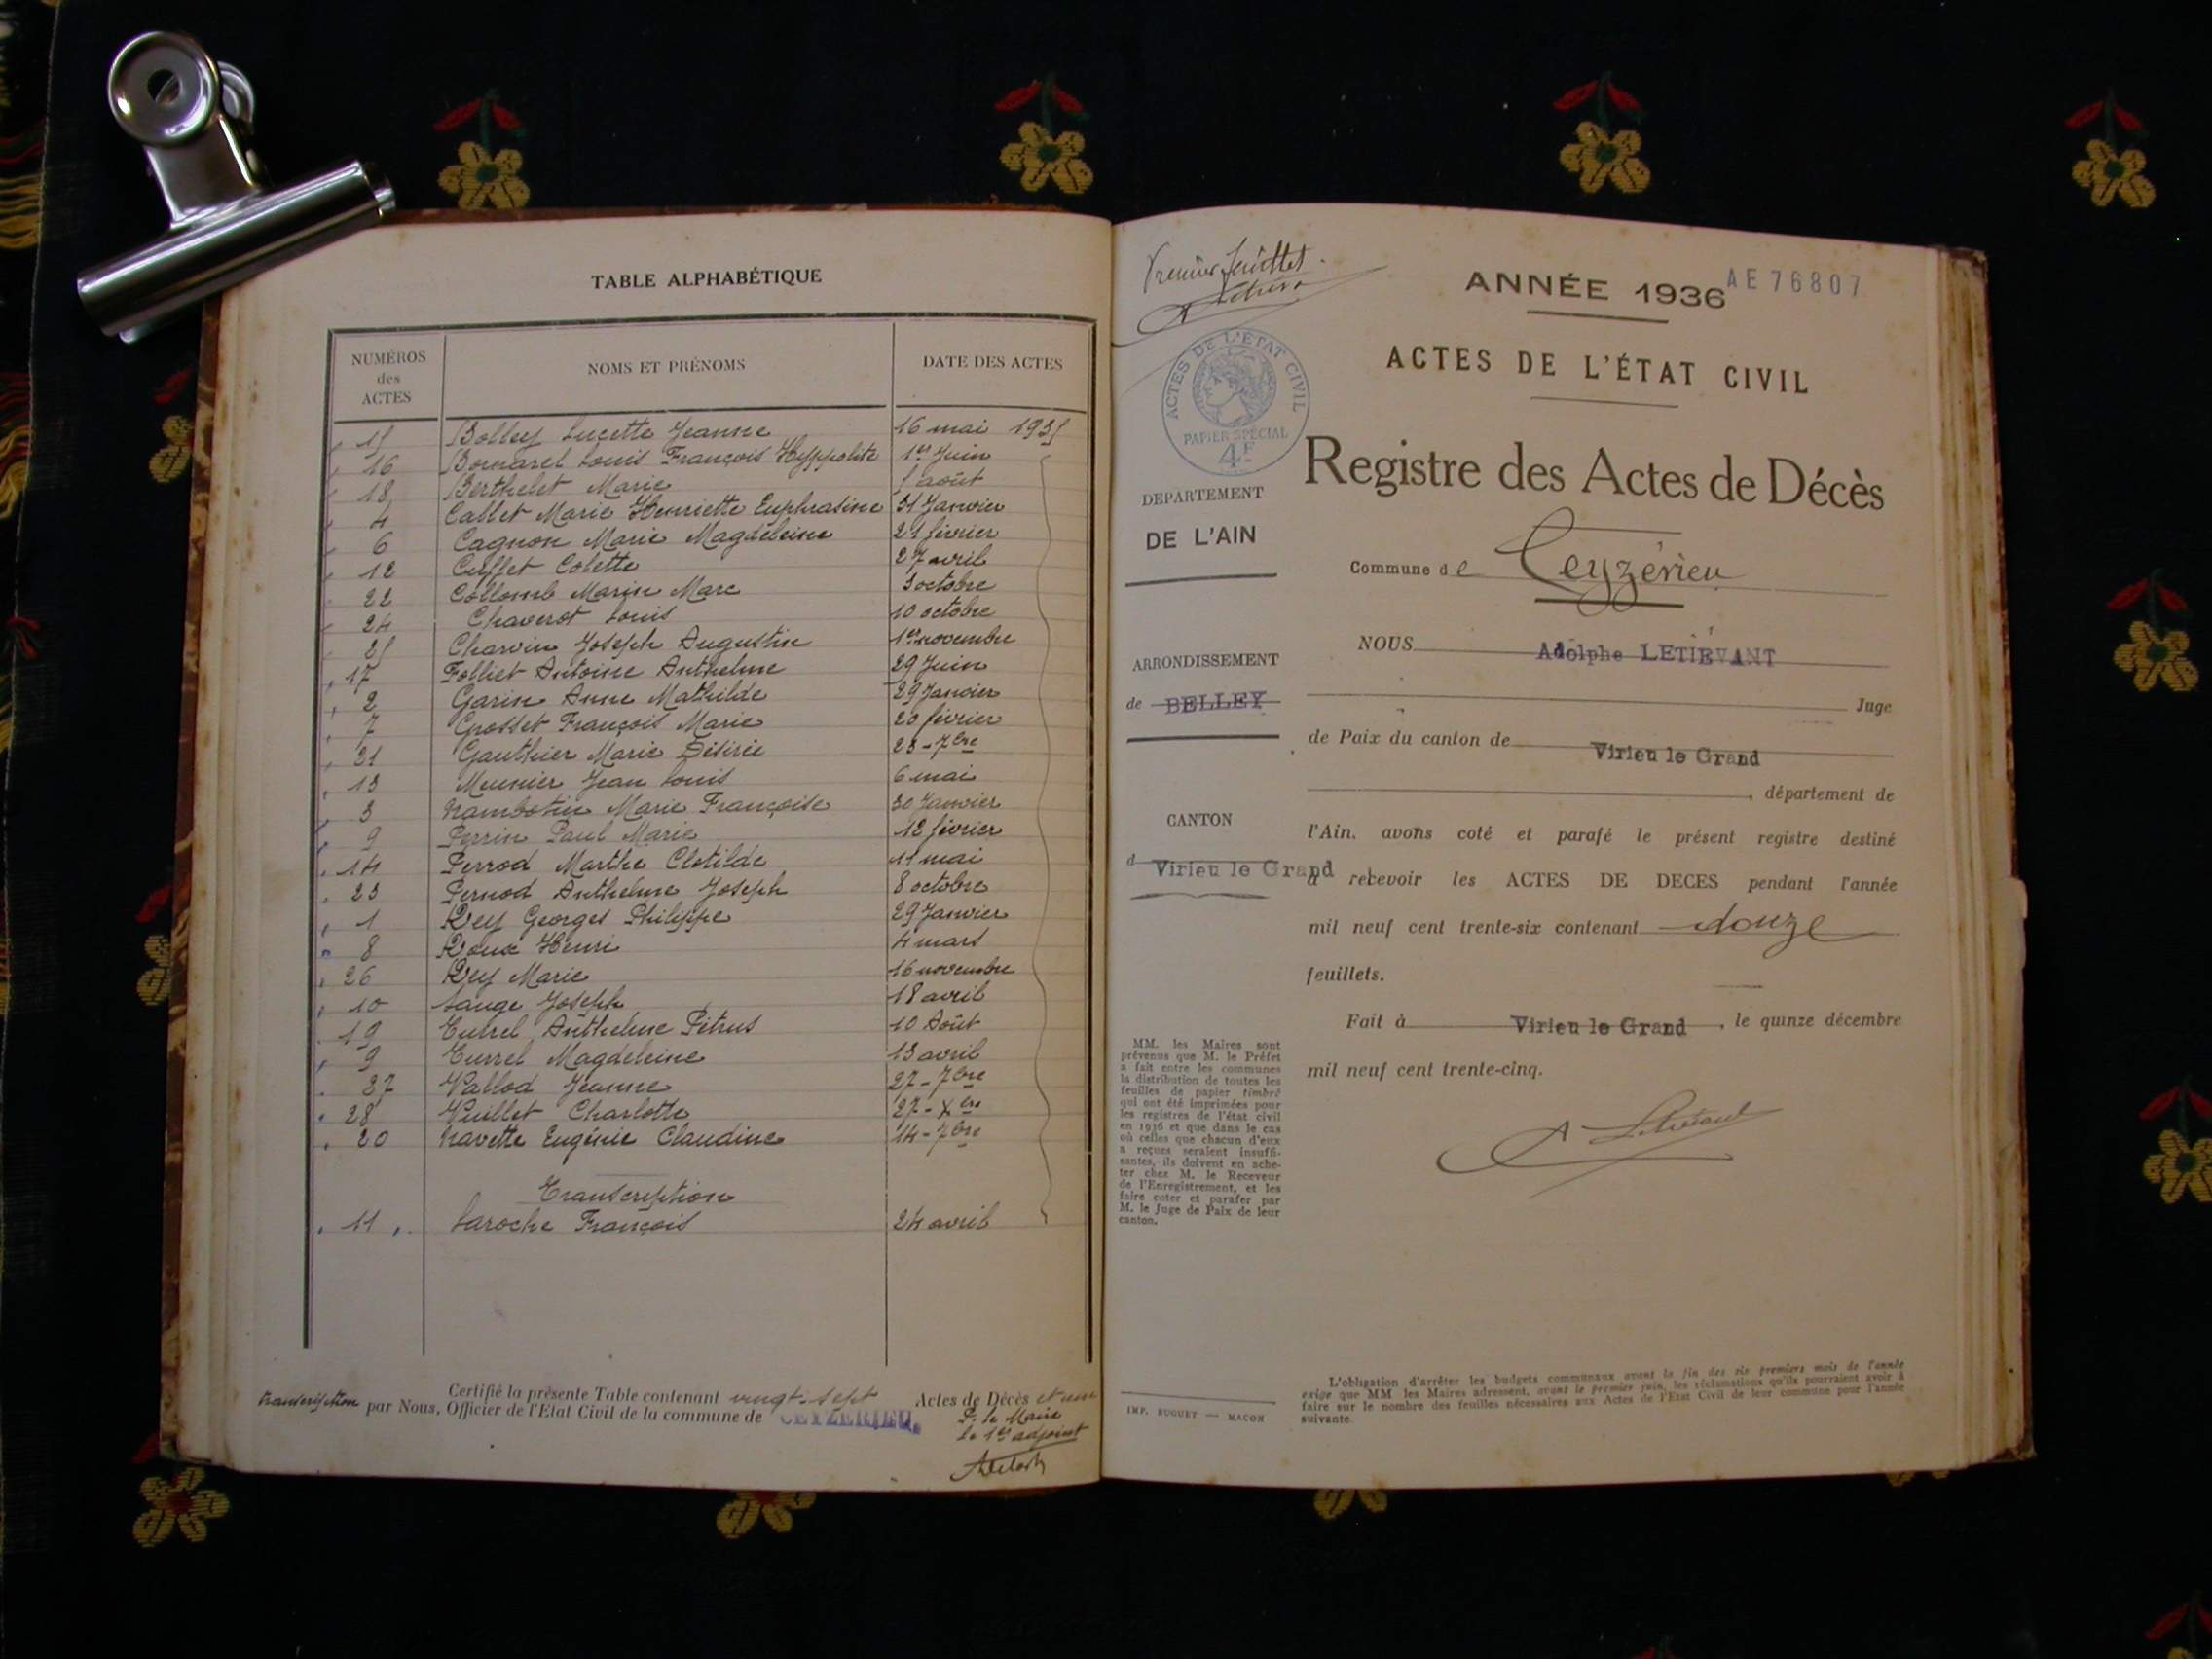 TABLE ALPHABÉTIQUE
NUMÉROS des ACTES NOMS ET PRÉNOMS DATE DES ACTES
15 Bolley Lucette Jeanne 16 mai 1935
16 Bornarel Louis François Hyppolite 1er Juin
18 Berthelet Marie 5 août
4 Callet Marie Henriette Euphrasine 31 Janvier
6 Cagnon Marie Magdeleine 21 février
12 Cuffet Colette 27 avril
22 Collomb Marin Marc 3 octobre
24 Chaverot Louis 10 octobre
25 Charvin Joseph Augustin 1er novembre
17 Folliet Antoine Anthelme 29 Juin
2 Garin Anne Mathilde 29 Janvier
7 Grosset François Marie 20 février
21 Gauthier Marie Désirée 23-7bre
13 Meunier Jean Louis 6 mai
3 Nambotin Marie Françoise 30 Janvier
9 Perrin Paul Marie 12 février
14 Perrod Marthe Clotilde 11 mai
23 Pernod Anthelme Joseph 8 octobre
1 Rey Georges Philippe 29 Janvier
8 Roux Henri 4 mars
26 Rey Marie 16 novembre
10 Sauge Joseph 18 avril
19 Anthelme Pétrus 10 Août
9 Turrel Magdeleine 13 avril
27 Vallod Jeanne 27-7bre
28 Vuillet Charlotte 27-Xbre
20 Navette Eugénie Claudine 14-7bre
Transcription
11 Laroche François 24 avril
Certifié la présente Table contenant vingt-sept Actes de Décès et une
transcription par Nous, Officier de l'Etat Civil de la commune de CEYZERIEU.
P. le Maire
le 1er adjoint
Premier feuillet.
ANNÉE 1936 AE76807
ACTES DE L'ÉTAT CIVIL
ACTES DE L'ÉTAT CIVIL
PAPIER SPÉCIAL
4F
Registre des Actes de Décès
DEPARTEMENT
DE L'AIN
Commune de Ceyzérieu
NOUS Adolphe LETIÉVANT
ARRONDISSEMENT
de BELLEY
Juge
de Paix du canton de Virieu le Grand
, département de
CANTON
d Virieu le Grand
l'Ain, avons coté et parafé le présent registre destiné
à recevoir les ACTES DE DECES pendant l'année
mil neuf cent trente-six contenant douze
feuillets.
Fait à Virieu le Grand , le quinze décembre
mil neuf cent trente-cinq.
MM. les Maires sont
prévenus que M. le Préfet
a fait entre les communes
la distribution de toutes les
feuilles de papier timbré
qui ont été imprimées pour
les registres de l'état civil
en 1936 et que dans le cas
où celles que chacun d'eux
a reçues seraient insuffi-
santes, ils doivent en ache-
ter chez M. le Receveur
de l'Enregistrement, et les
faire coter et parafer par
M. le Juge de Paix de leur
canton.
IMP. BUGUET — MACON
L'obligation d'arrêter les budgets communaux avant la fin des six premiers mois de l'année
exige que MM. les Maires adressent, avant le premier juin, les réclamations qu'ils pourraient avoir à
faire sur le nombre des feuilles nécessaires aux Actes de l'Etat Civil de leur commune pour l'année
suivante.